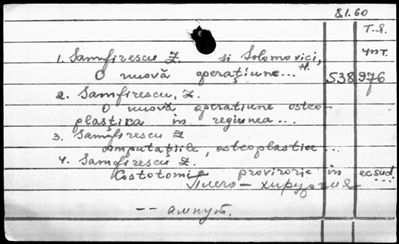 8.1.60
T.Я.
Чит.
1. Samfirescu Z. si Solomovici, H.
O nouă operaţiune... 538976
2. Samfirescu, Z.
O nouă operatiune osteo-
plaştica in regiunea...
3. Samfirescu Z
Amputaţiile, osteoplastice...
4. Samfirescu Z.
Costotomie provizorie in
хирургия
-- ампут.